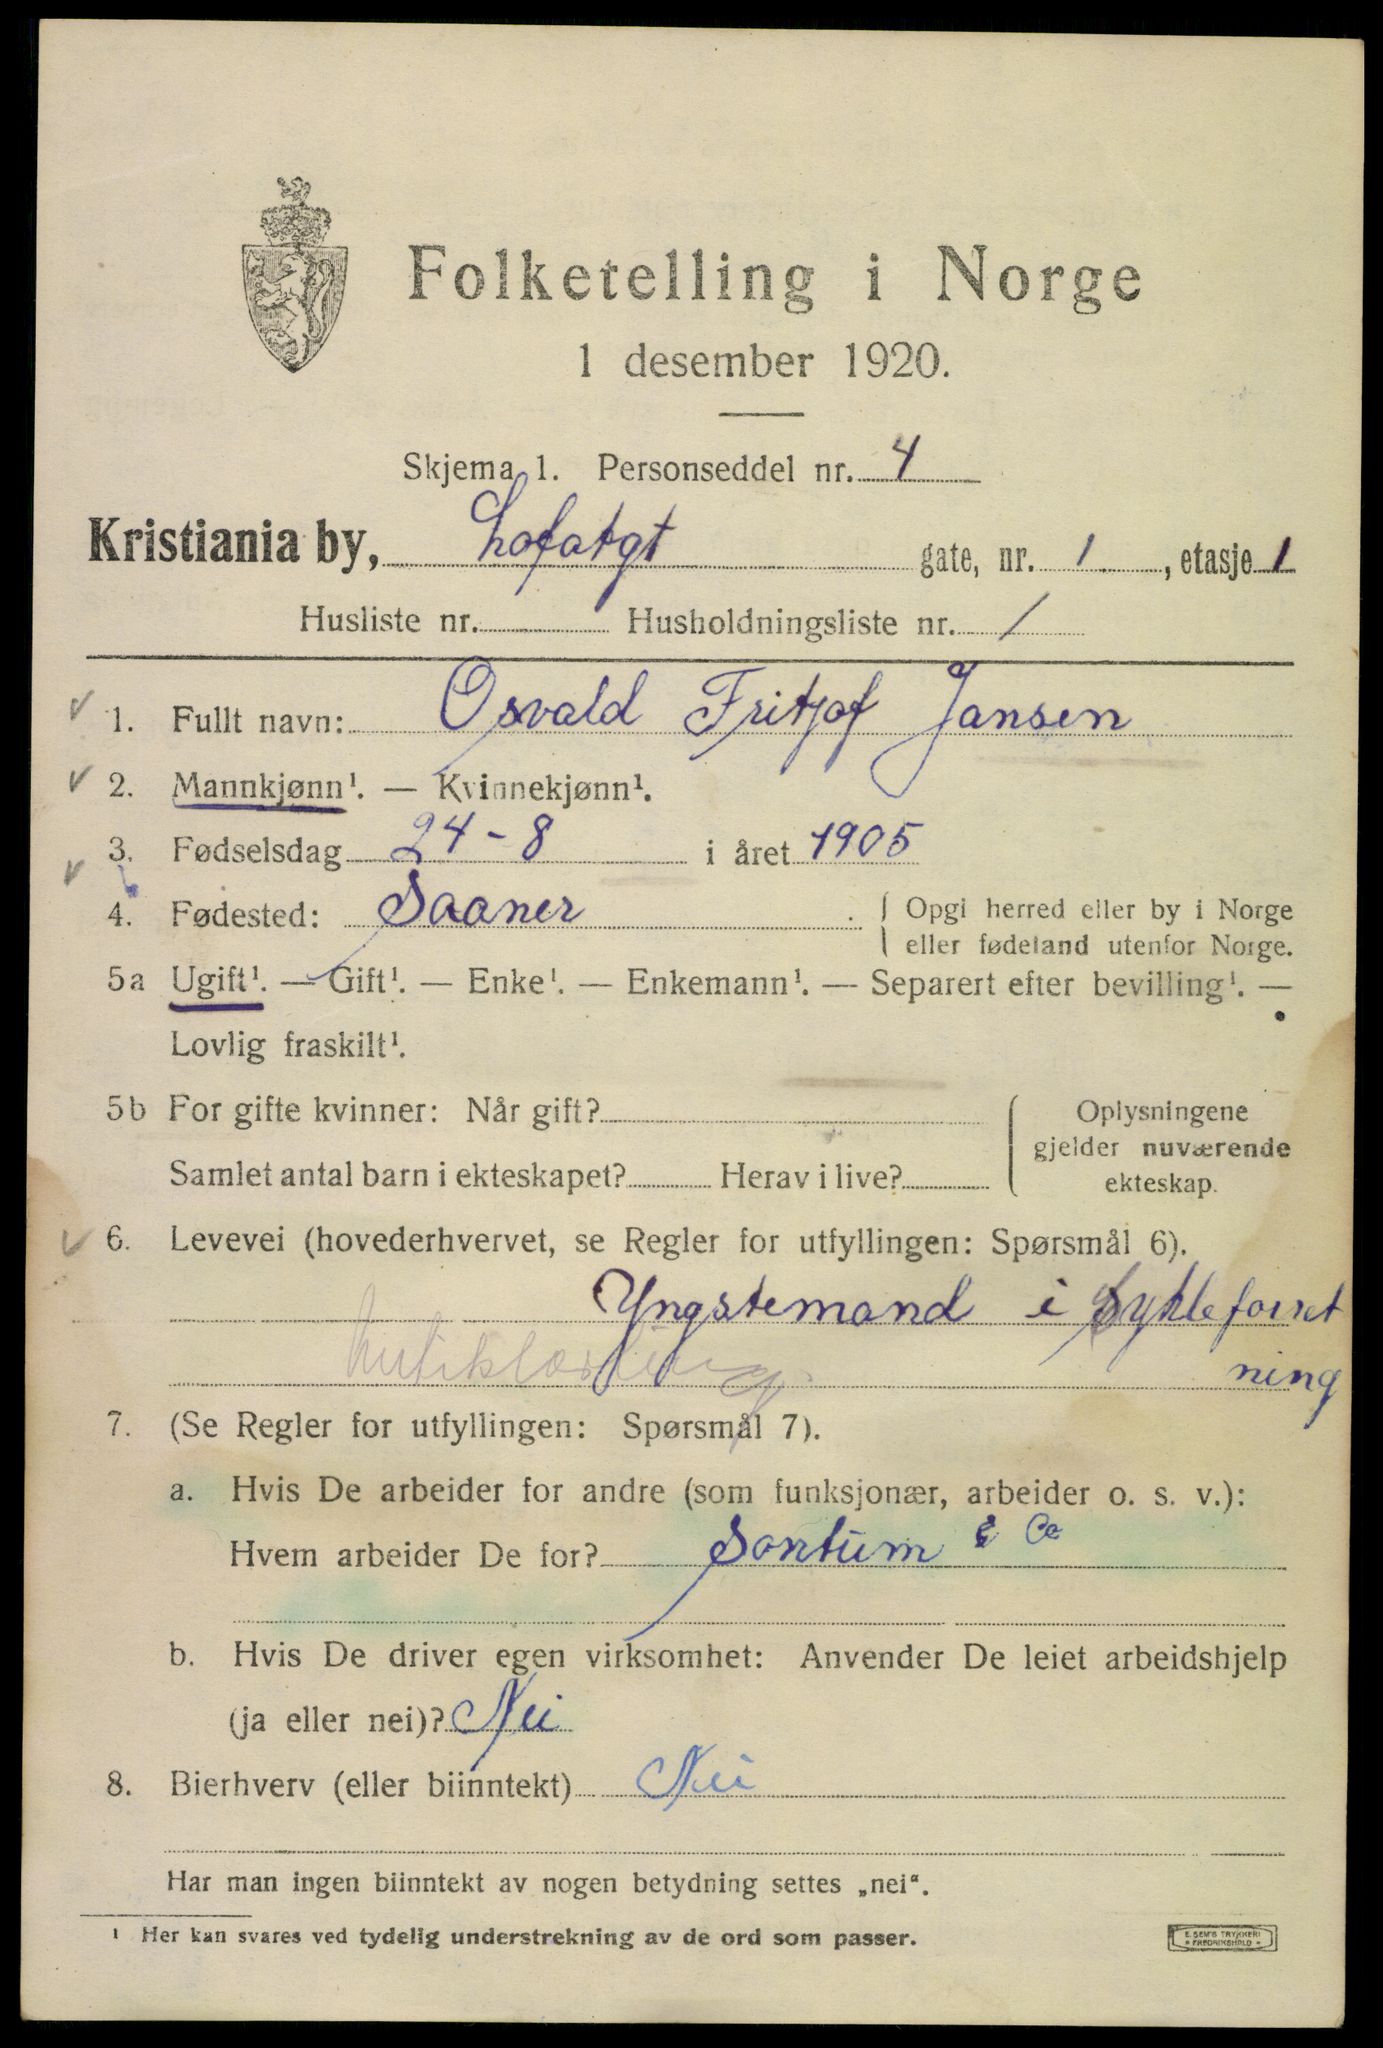 Folketelling i Norge
1 desember 1920.
Skjema 1. Personseddel nr. 4
Kristiania by, Lofatgt gate, nr. 1, etasje 1
Husliste nr. Husholdningsliste nr. 1
1. Fullt navn: Osvald Fritjof Jansen
2. Mannkjønn¹. — Kvinnekjønn¹.
3. Fødselsdag 24-8 i året 1905
4. Fødested: Saaner. Opgi herred eller by i Norge
eller fødeland utenfor Norge.
5a Ugift¹. — Gift¹. — Enke¹. — Enkemann¹. — Separert efter bevilling¹. —
Lovlig fraskilt¹.
5b For gifte kvinner: Når gift? Oplysningene
gjelder nuværende
Samlet antal barn i ekteskapet? Herav i live? ekteskap.
6. Levevei (hovederhvervet, se Regler for utfyllingen: Spørsmål 6).
Yngstemand i Sykleforret
ning
7. (Se Regler for utfyllingen: Spørsmål 7).
a. Hvis De arbeider for andre (som funksjonær, arbeider o. s. v.):
Hvem arbeider De for? Sontum & Co
b. Hvis De driver egen virksomhet: Anvender De leiet arbeidshjelp
(ja eller nei)? Nei
8. Bierhverv (eller biinntekt) Nei
Har man ingen biinntekt av nogen betydning settes „nei“.
¹ Her kan svares ved tydelig understrekning av de ord som passer.
E. SEM'S TRYKKERI
FREDRIKSHALD